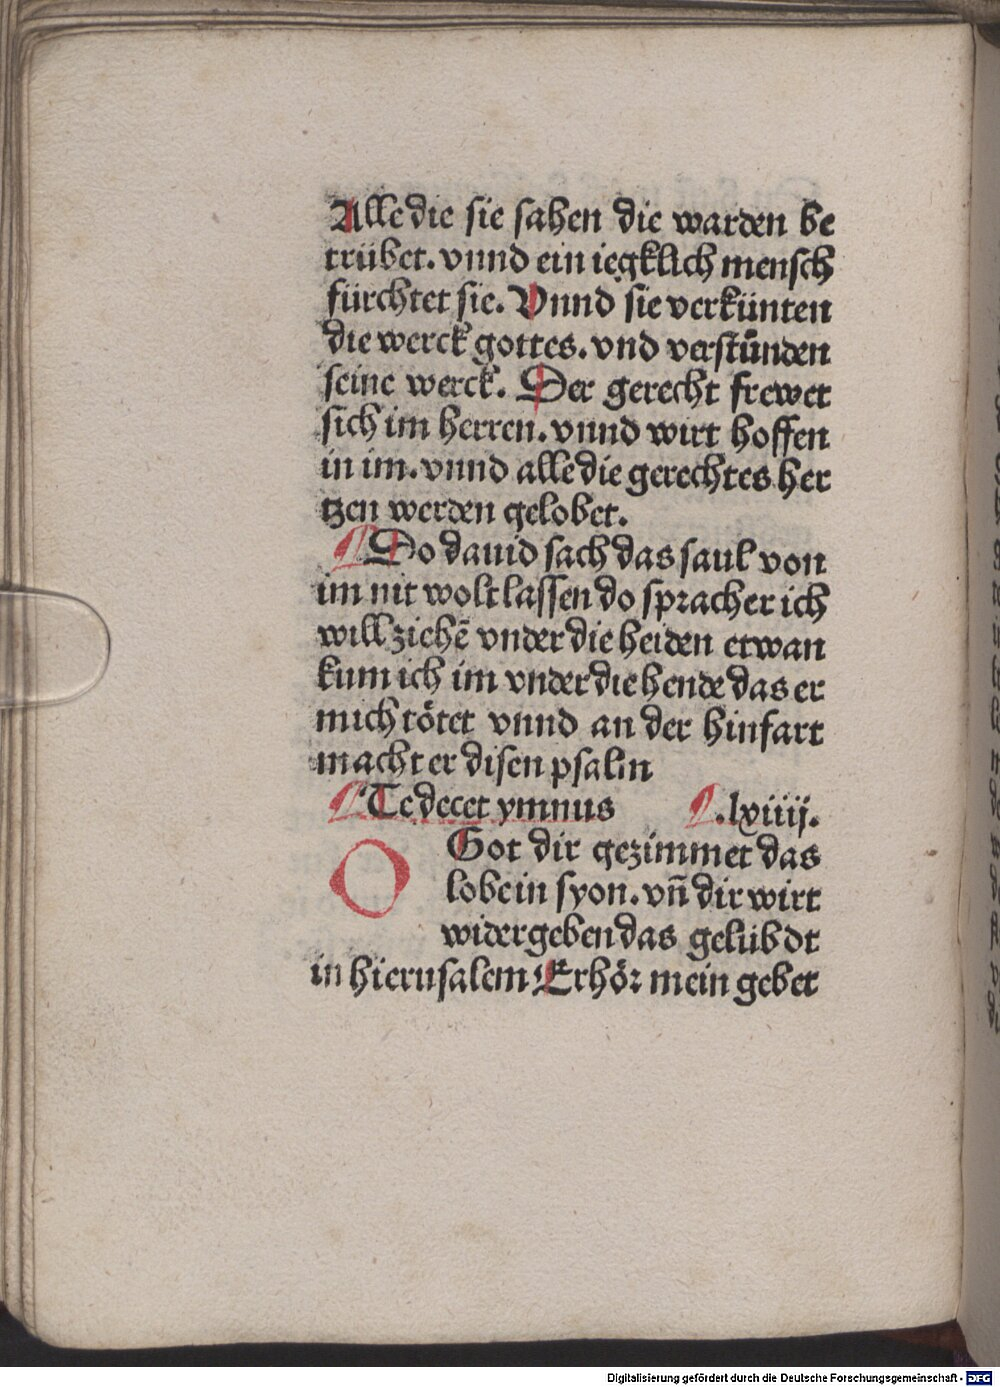 Alle die sie sahen die warden be
trübet. vnnd ein iegklich mensch
fürchtet sie. Vnnd sie verkünten
die werck gottes. vnd verstůnden
seine werck. Der gerecht frewet
sich im herren. vnnd wirt hoffen
in im. vnnd alle die gerechtes her
tzen werden gelobet.
Do dauid sach das saul von
im nit wolt lassen do sprach er ich
will ziehē vnder die heiden etwan
kum ich im vnder die hende das er
mich tötet vnnd an der hinfart
macht er disen psalm
Te decet ymnus .lxiiij.
O Got dir gezimmet das
lobe in syon. vñ dir wirt
widergeben das gelübdt
in hierusalem Erhör mein gebet
Digitalisierung gefördert durch die Deutsche Forschungsgemeinschaft - DFG